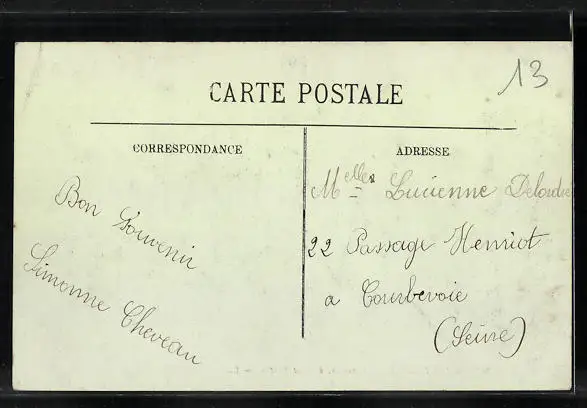 13
CARTE POSTALE
CORRESPONDANCE
Bon Souvenir
Simonne Cheveau
ADRESSE
Melles Lucienne
22 Passage Henriot
a Courbevoie
(Seine)